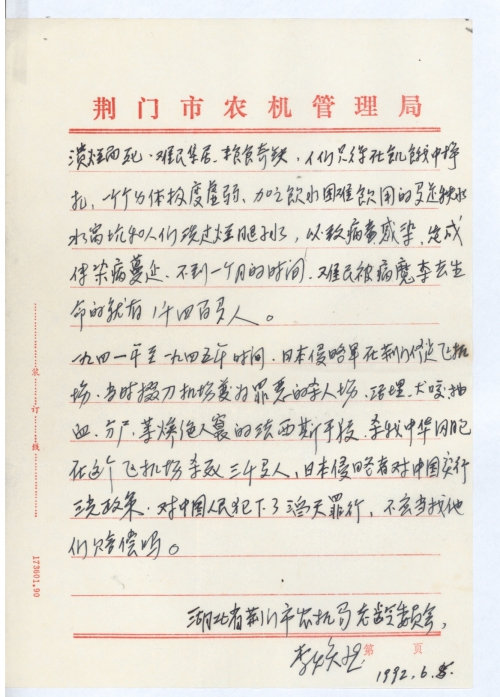 荆门市农机管理局
溃烂而死。难民集居、粮食奇缺，人们只得在饥饿中挣
扎，个个身体极度虚弱、加之饮水困难饮用的是
水窝坑和人们洗过烂腿水，以致病毒感染，造成
传染病蔓延。不到一个月的时间，难民被病魔夺去生
命的就有1千四百多人。
一九四一年至一九四五年时间，日本侵略军在荆门修飞机
场，当时掇刀机场变为罪恶的杀人场，活埋、犬咬、抽
血、分尸、等灭绝人寰的法西斯手段，杀我中华同胞
在这个飞机场杀死三千多人，日本侵略者对中国实行
三光政策，对中国人民犯下了滔天罪行，不应当找他
们赔偿吗。
装
订
线
173601.90
湖北省荆门市农机局老龄委员会，
李焕
第 页
1992.6.